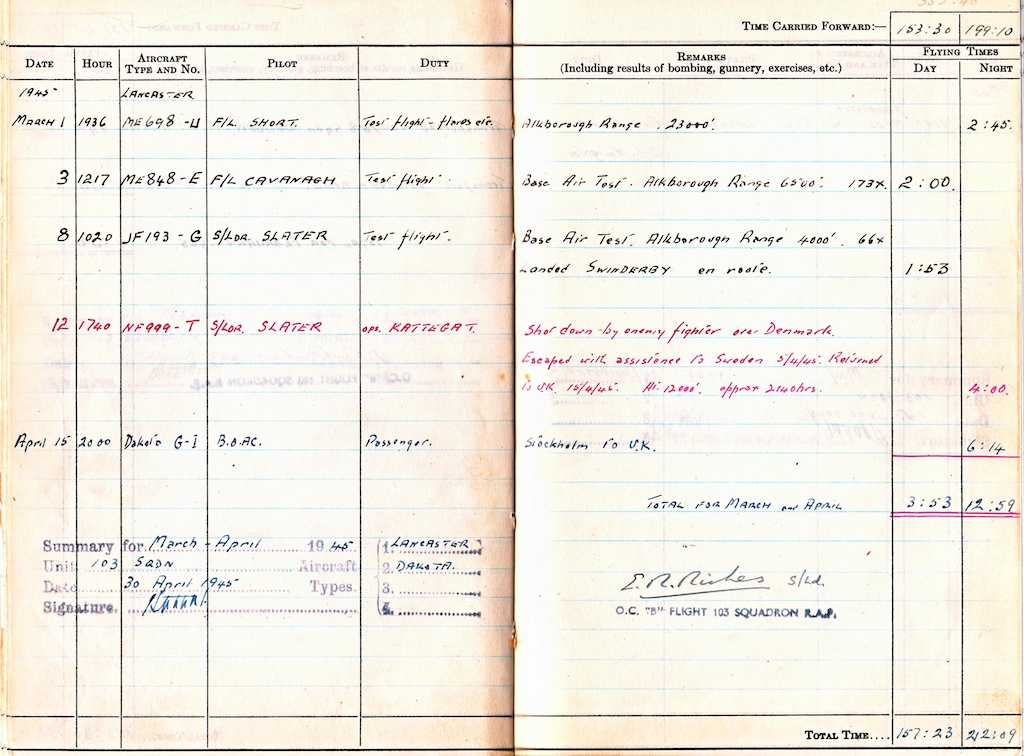 TIME CARRIED FORWARD:— 153:30 199:10
DATE HOUR AIRCRAFT TYPE AND NO. PILOT DUTY REMARKS (Including results of bombing, gunnery, exercises, etc.) FLYING TIMES DAY NIGHT
1945 LANCASTER
MARCH 1 1936 ME698-U F/L. SHORT. Test flight - flares etc. Alkborough Range . 23000'. 2:45.
3 1217 ME848-E F/L CAVANAGH Test flight. Base Air Test. Alkborough Range 6500'. 173x. 2:00.
8 1020 JF193-G S/LDR. SLATER Test flight. Base Air Test. Alkborough Range 4000'. 66x
Landed SWINDERBY en route. 1:53
12 1740 NF999-T S/LDR. SLATER ops. KATTEGAT. Shot down by enemy fighter over Denmark.
Escaped with assistance to Sweden 5/4/45. Returned
to U.K. 15/4/45. Ht. 12000'. approx 2140hrs. 4:00.
April 15 2000 Dakota G-I B.O.A.C. Passenger. Stockholm to U.K. 6:14
TOTAL FOR MARCH and APRIL 3:53 12:59
Summary for March - April 1945 1. LANCASTER
Unit 103 SQDN Aircraft 2. DAKOTA.
Date 30 April 1945 Types. 3.
Signature. 4.
S/Ld.
O.C. "B" FLIGHT 103 SQUADRON R.A.F.
TOTAL TIME.... 157:23 212:09